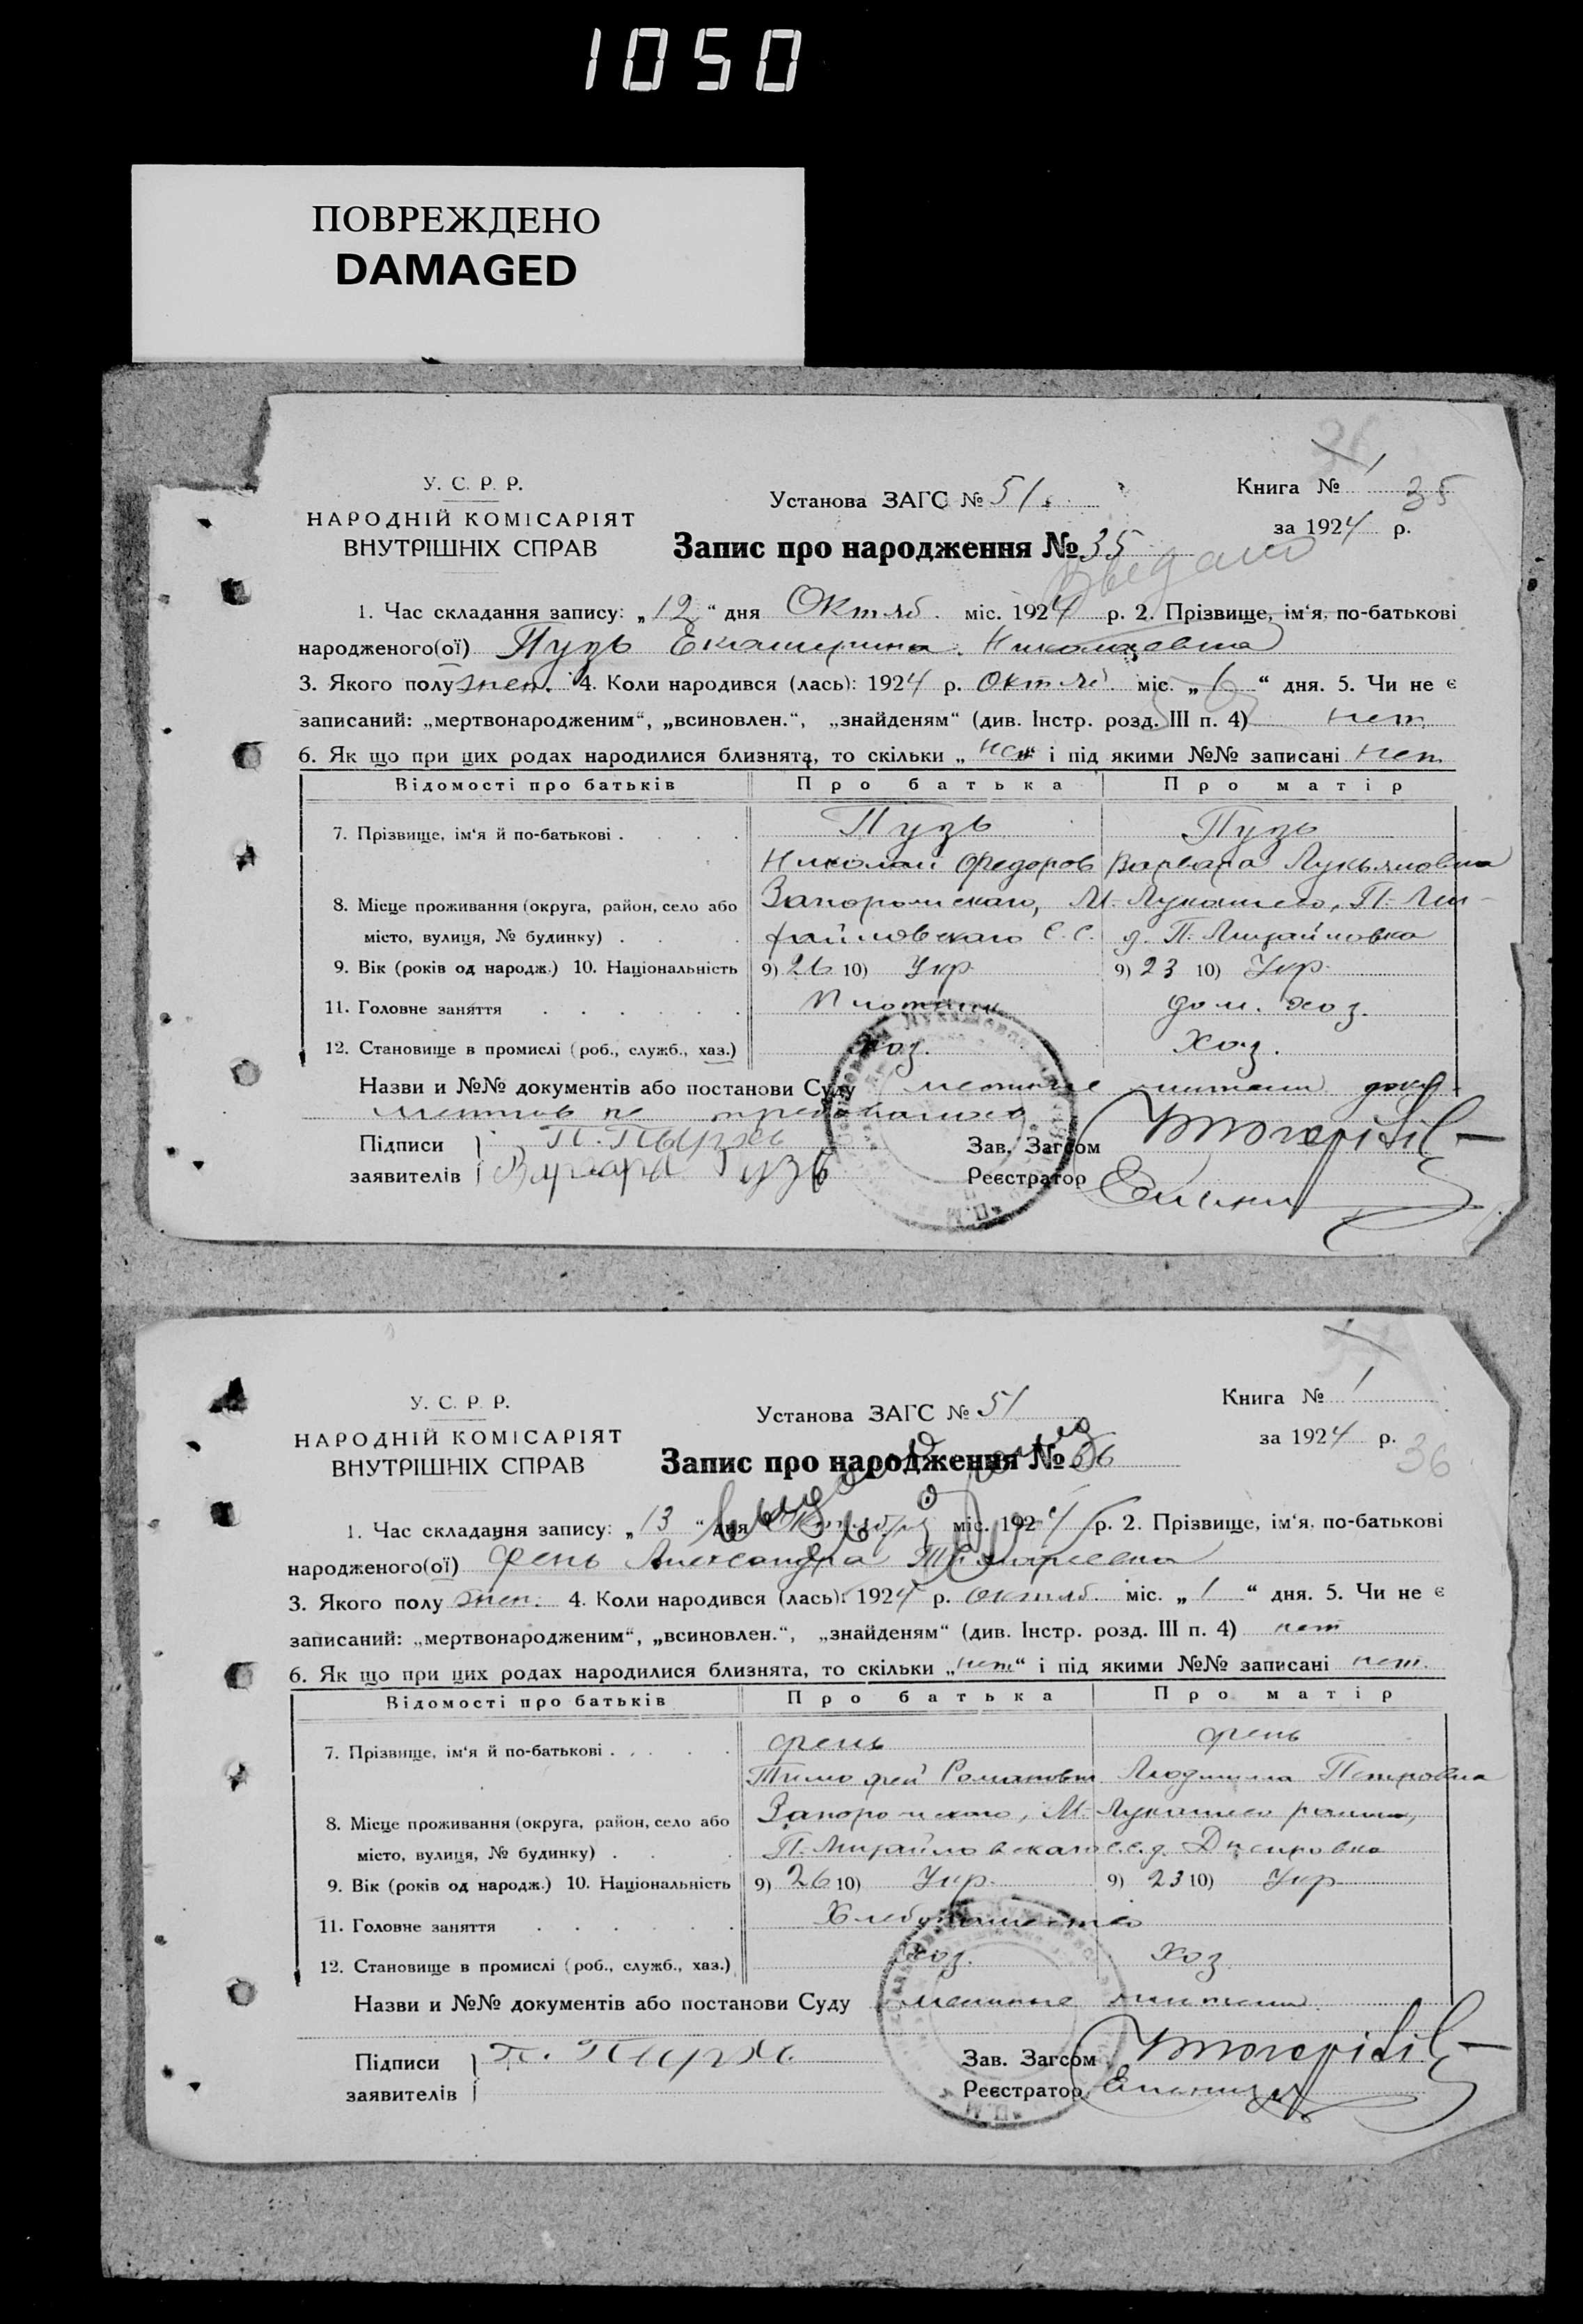 1050
ПОВРЕЖДЕНО
DAMAGED
36
У. С. Р. Р.
НАРОДНІЙ КОМІСАРІЯТ
ВНУТРІШНІХ СПРАВ
Установа ЗАГС № 51
Книга № 1 35
за 1924 р.
Запис про народження № 35
Выдано
1. Час складання запису: „12“ дня Октяб. міс. 1924 р. 2. Прізвище, ім‘я, по-батькові
народженого(ої) Пузь Екатерина Николаевна
3. Якого полу жен. 4. Коли народився (лась): 1924 р. Октяб. міс. „6“ дня. 5. Чи не є
записаний: „мертвонародженим“, „всиновлен.“, „знайденям“ (див. Інстр. розд. III п. 4) нет
6. Як що при цих родах народилися близнята, то скільки „нет“ і під якими №№ записані нет
Відомості про батьків Про батька Про матір
7. Прізвище, ім‘я й по-батькові . Пузь Пузь
Николай Федоров Варвара Лукьяновна
8. Місце проживання (округа, район, село або Запорожскаго, М. Лукашево, П. Ми-
місто, вулиця, № будинку) . хайловскаго С.С. д. П. Михайловка
9. Вік (років од народж.) 10. Національність 9) 26 10) Укр. 9) 23 10) Укр.
11. Головне заняття Плотник дом. хоз.
12. Становище в промислі (роб., служб., хаз.) хоз. Хоз.
Назви и №№ документів або постанови Суду местные жители доку-
ментов не требовалось
Підписи
заявителів Варвара Пузь
Зав. Загсом
Реєстратор
У. С. Р. Р.
НАРОДНІЙ КОМІСАРІЯТ
ВНУТРІШНІХ СПРАВ
Установа ЗАГС № 51
Книга № 1
за 1924 р. 36
Запис про народження № 36
1. Час складання запису: „13“ дня Октября міс. 1924 р. 2. Прізвище, ім‘я, по-батькові
народженого(ої) Фень Александра Тимофеевна
3. Якого полу жен. 4. Коли народився (лась): 1924 р. октяб. міс. „1“ дня. 5. Чи не є
записаний: „мертвонародженим“, „всиновлен.“, „знайденям“ (див. Інстр. розд. III п. 4) нет
6. Як що при цих родах народилися близнята, то скільки „нет“ і під якими №№ записані нет.
Відомості про батьків Про батька Про матір
7. Прізвище, ім‘я й по-батькові . Фень Фень
Тимофей Романович Людмила Петровна
8. Місце проживання (округа, район, село або Запорожскаго, М. Лукашево района,
місто, вулиця, № будинку) . П. Михайловскаго с.с. д. Днепровка
9. Вік (років од народж.) 10. Національність 9) 26 10) Укр. 9) 23 10) Укр
11. Головне заняття Хлебопашество
12. Становище в промислі (роб., служб., хаз.) Хоз. Хоз
Назви и №№ документів або постанови Суду местные жители
Підписи
заявителів
Зав. Загсом
Реєстратор